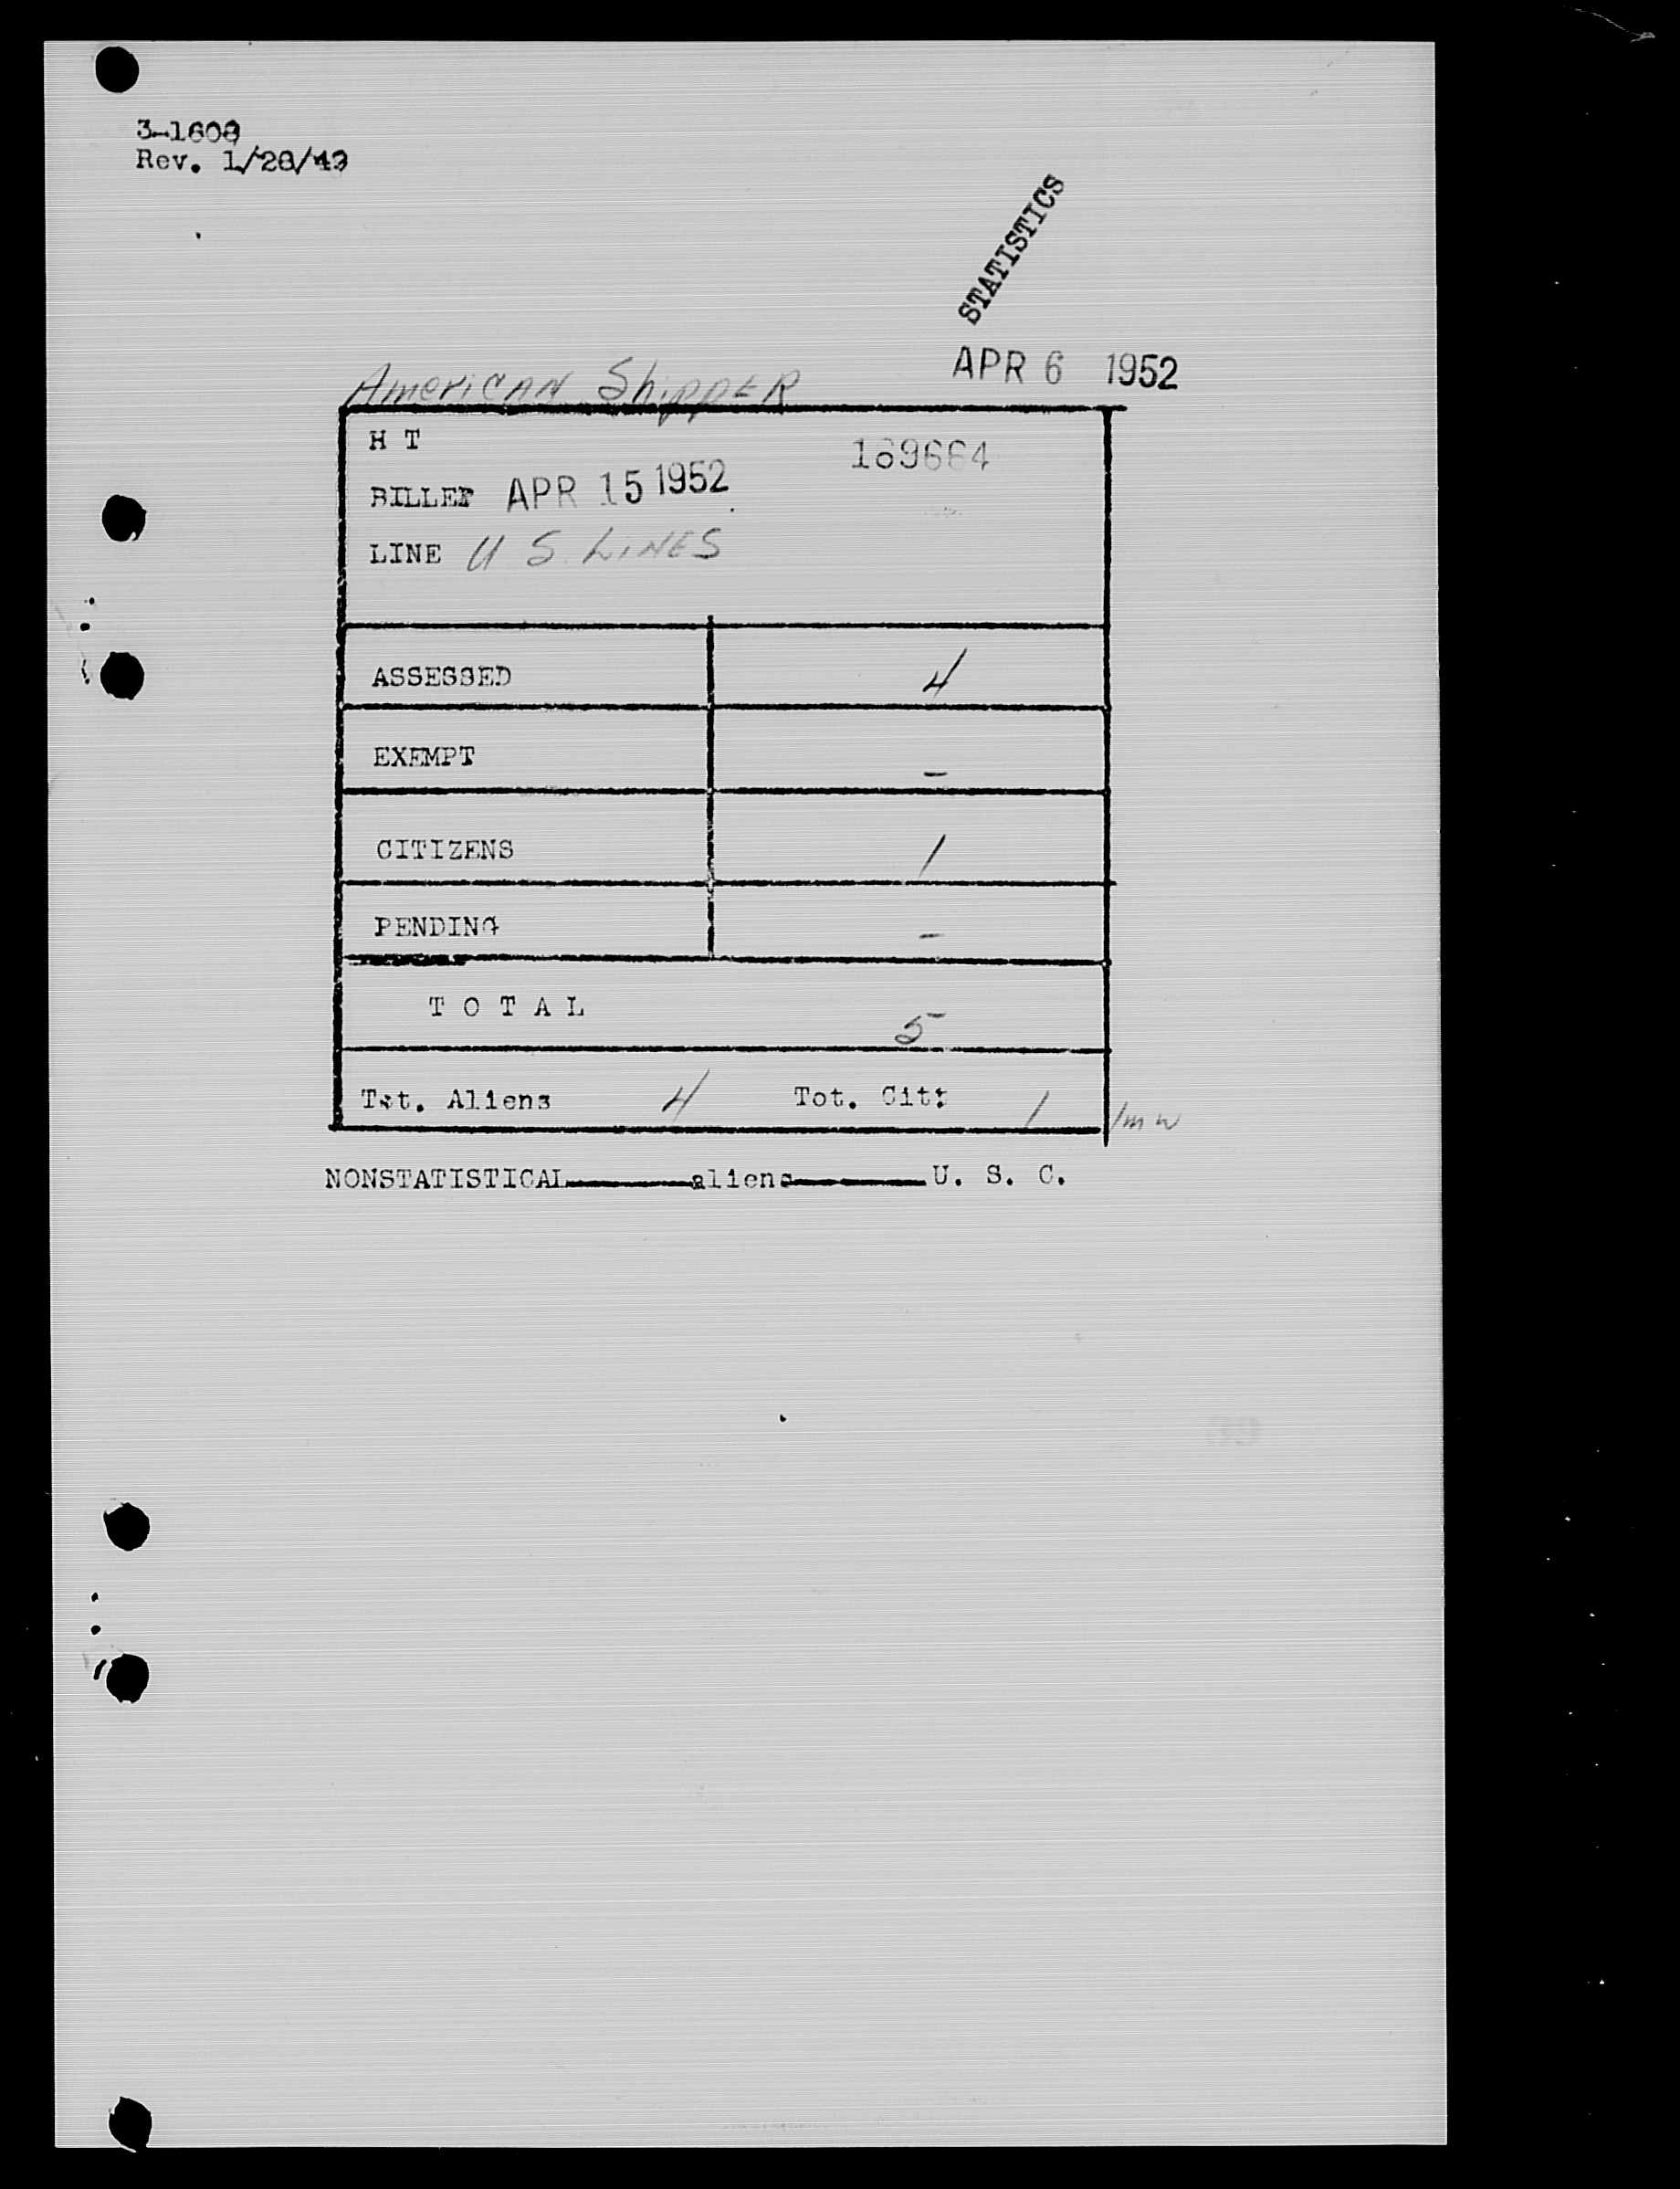 3-1608
Rev. 1/28/49
STATISTICS
American Shipper APR 6 1952
H T 169664
BILLET APR 15 1952
LINE U S. LINES
ASSESSED 4
EXEMPT -
CITIZENS 1
PENDING -
T O T A L 5
Tot. Aliens 4 Tot. Cit: 1 /mw
NONSTATISTICAL aliens U. S. C.